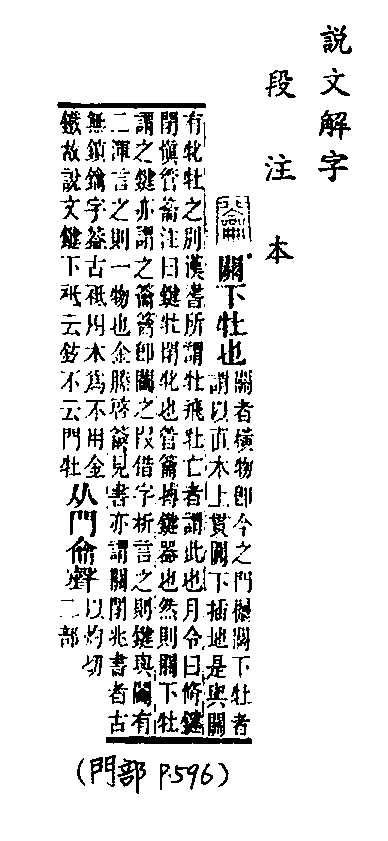 說文解字
段注本
關下牡也
關者橫物即今之門㯂關下牡者
謂以直木上貫關下插地是與關
有牝牡之別漢書所謂牡飛牡亡者謂此也月令曰脩鍵
閉愼管籥注曰鍵牡閉牝也管籥搏鍵器也然則關下牡
謂之鍵亦謂之籥籥卽𨷲之叚借字析言之則鍵與𨷲有
二渾言之則一物也金縢啓籥見書亦謂關閉兆書者古
無鎖鑰字葢古祇用木爲不用金
鐵故說文鍵下祇云鉉不云門牡
从門龠聲
以灼切
二部
(門部 P.596)